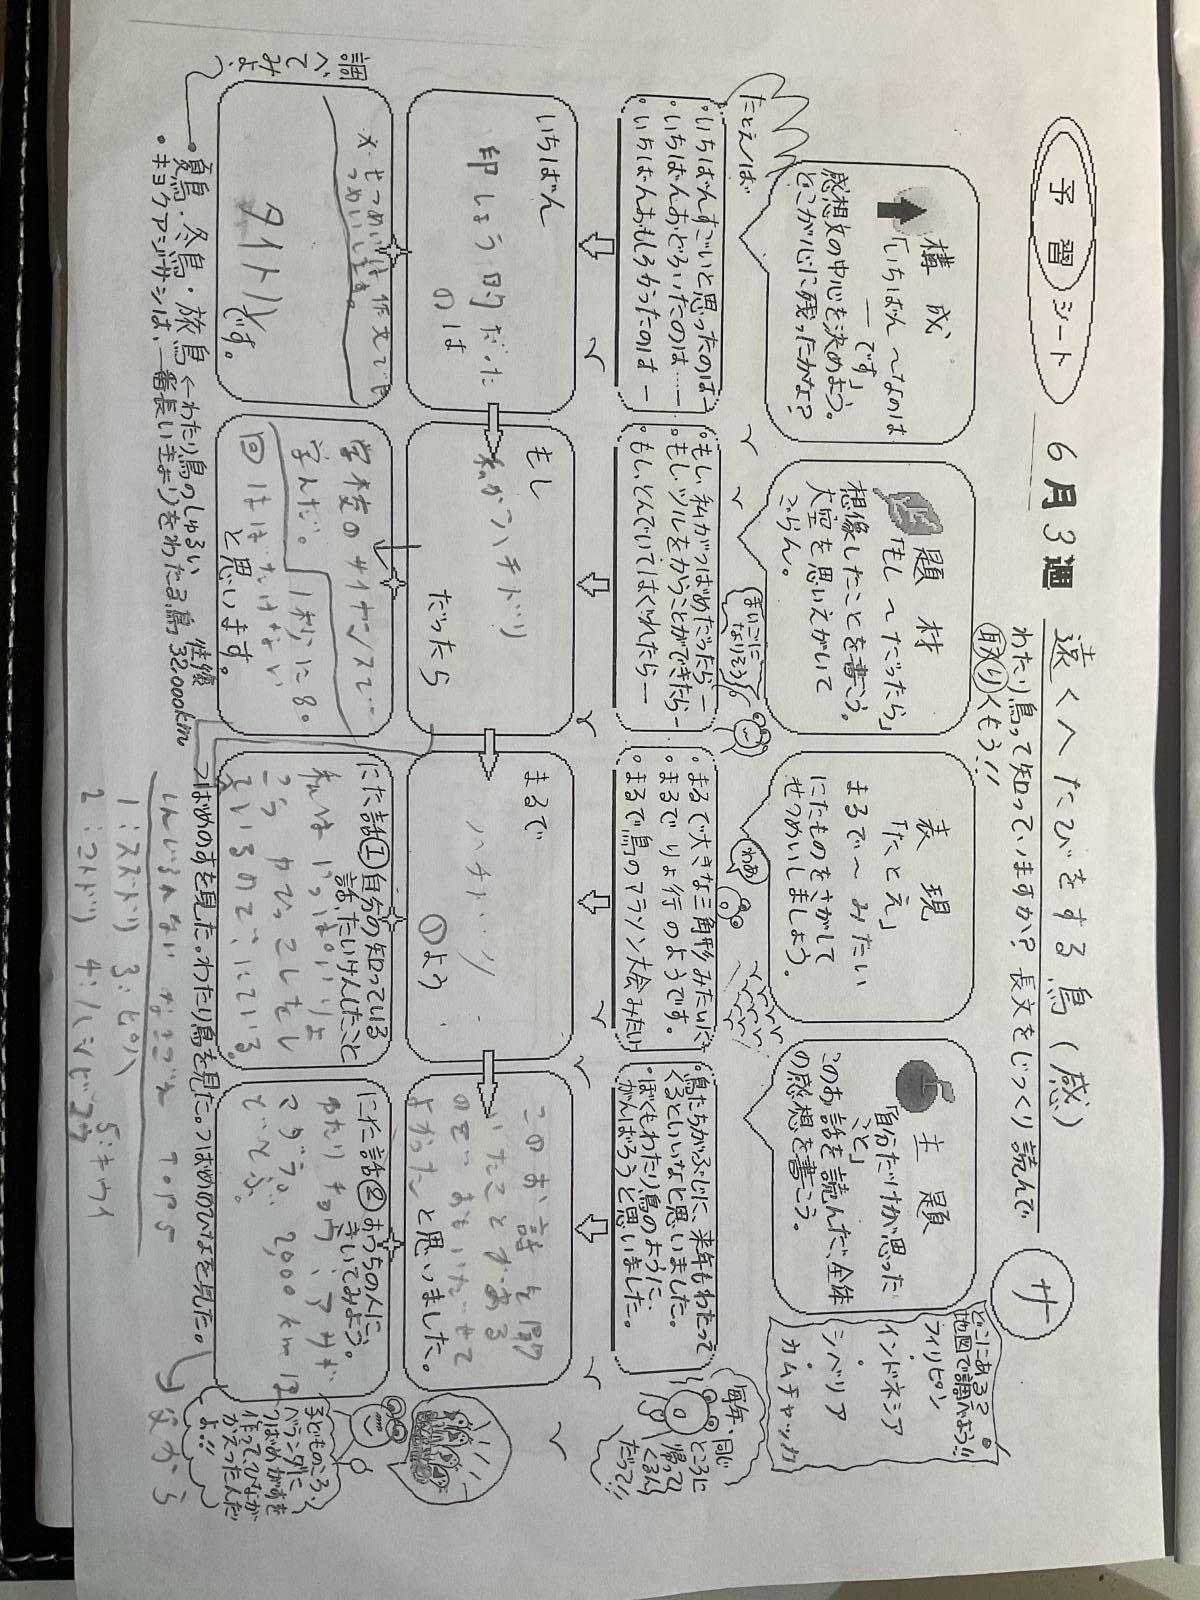 予習シート 6月3週 遠くへたびをする鳥(感) サ
わたり鳥って知っていますか?長文をじっくり読んで
取りくもう!!
構成
「いちばん〜なのは
―です」
感想文の中心を決めよう。
どこが心に残ったかな?
題材
「もし〜だったら」
想像したことを書こう。
大空を思いえがいて
ごらん。
表現
「たとえ」
まるで〜みたい
にたものをさがして
せつめいしましょう。
主題
「自分だけが思った
こと」
このお話を読んだ、全体
の感想を書こう。
どこにある?
地図で調べよう!!
フィリピン
インドネシア
シベリア
カムチャッカ
たとえば
まいごに
なりそう
わあ
・いちばんすごいと思ったのは―
・いちばんおどろいたのは……
・いちばんおもしろかったのは―
・もし、私がつばめだったら―
・もし、ツルをかうことができたら―
・もし、とんでいてはぐれたら―
・まるで大きな三角形みたいに
・まるでりょ行のようです。
・まるで鳥のマラソン大会みたい
・鳥たちがぶじに、来年もわたって
くるといいなと思いました。
・ぼくもわたり鳥のように、
がんばろうと思いました。
毎年、同じ
ところに
帰って
くるん
だって!!
いちばん
印しょう的だった
のは
もし
私がハチドリ
だったら
まるで
ハチドリ
のよう
このお話を聞
よかったと思いました。
調べてみよ。
タイトル
です。
学校のサイエンスで…
学んだ。1秒に80
回ははたけない
と思います。
にた話①自分の知っている
話、たいけんしたこと
にた話②おうちの人に、
きいてみよう。
わたりチョウ、アサギ
マダラは、2,000km
とぶ。
子どものころ、
ベランダに
つばめがすを
作って、ひなが
かえったんだ
よ!!
・夏鳥・冬鳥・旅鳥←わたり鳥のしゅるい
・キョクアジサシは、一番長いきょりをわたる鳥 32,000km
つばめのすを見た。わたり鳥を見た。つばめのひなを見た。
父から
top5
1:スズドリ 3:ピハ 5:キウイ
2:コトドリ